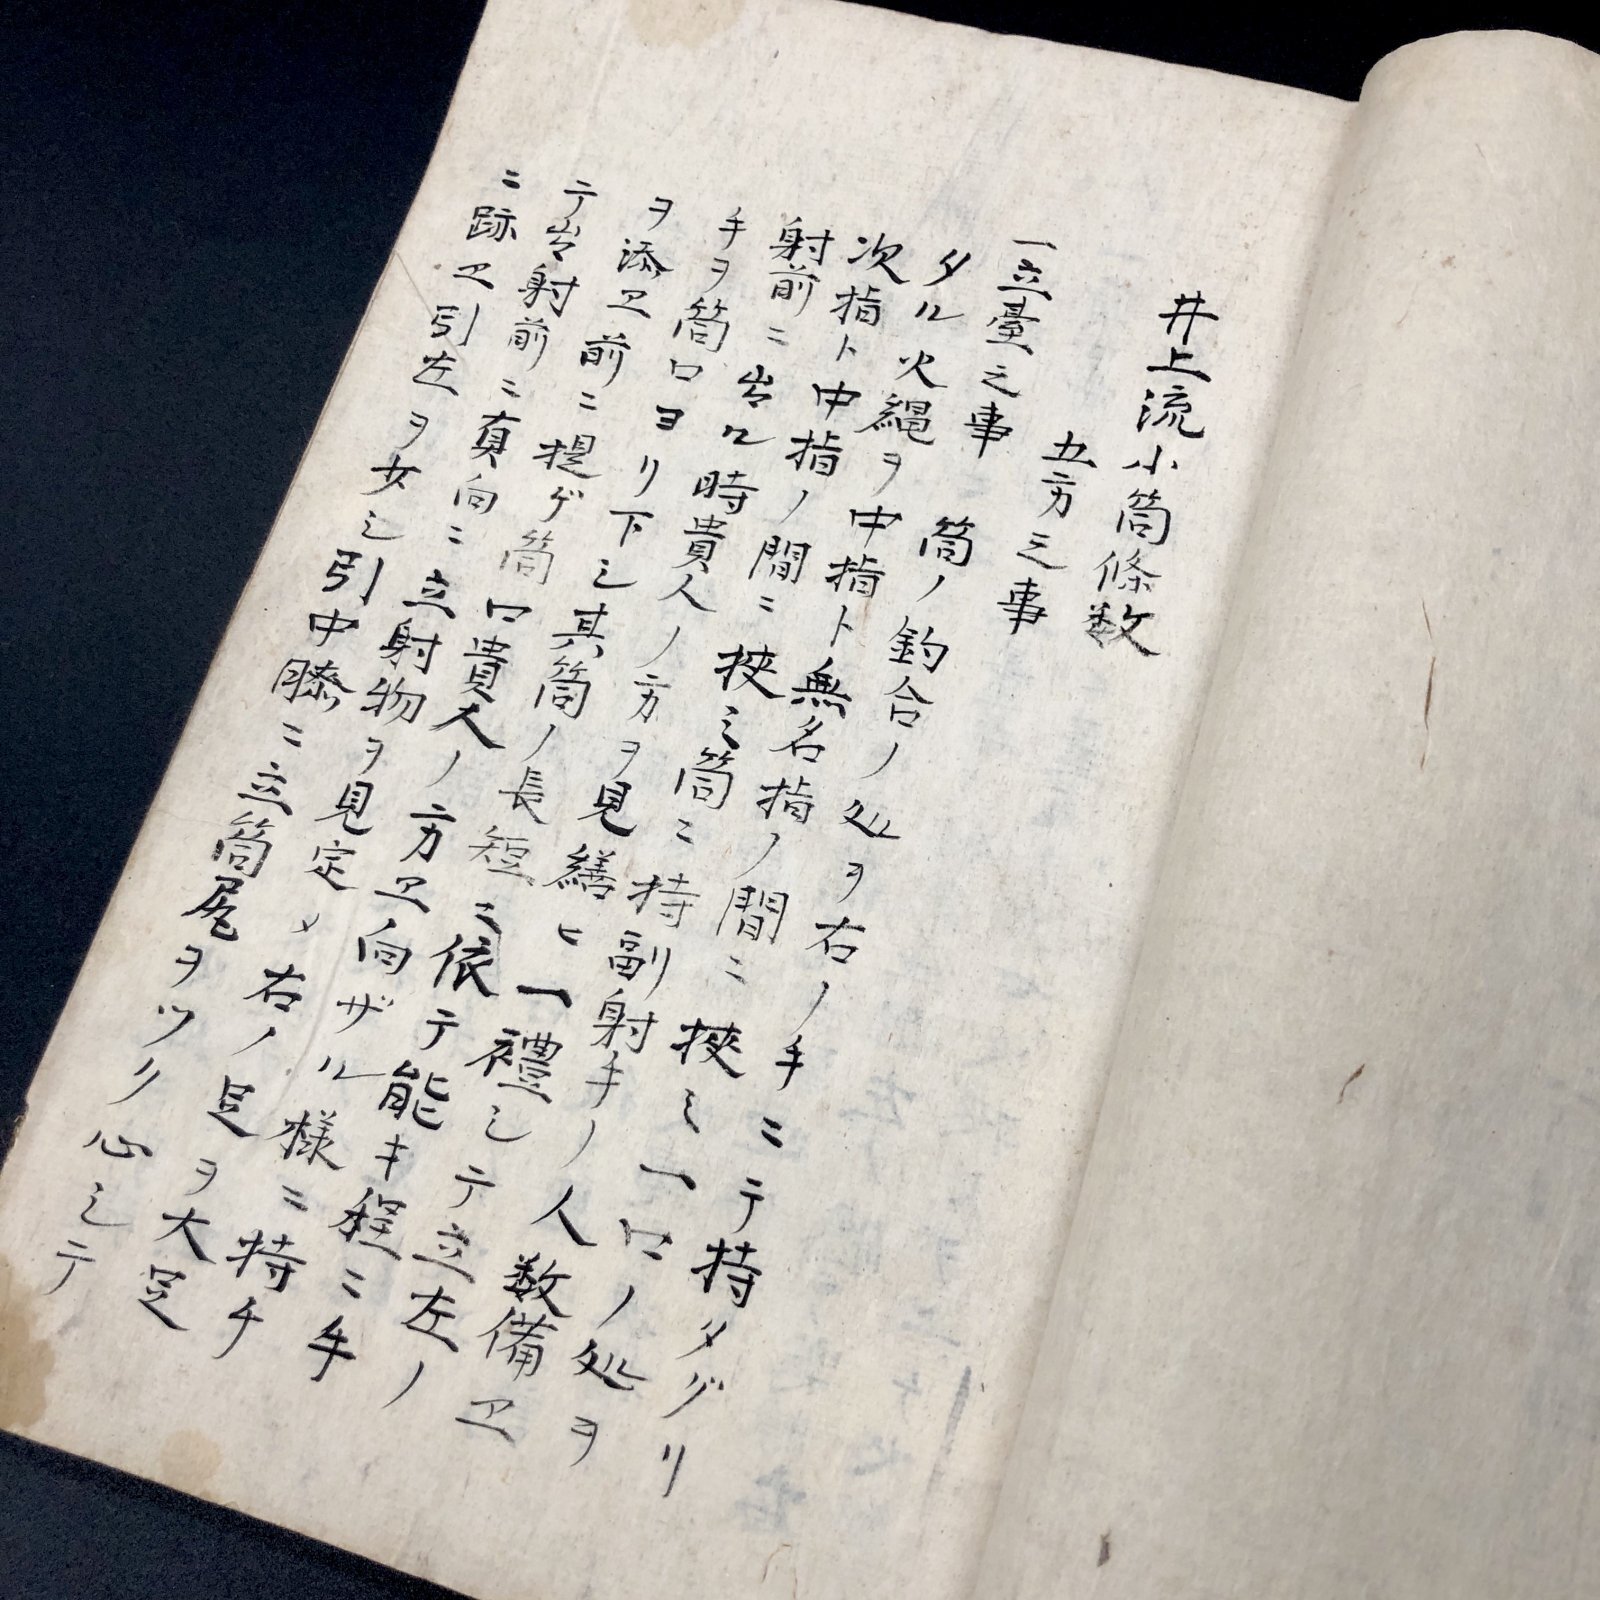 井上流小筒條数
五方之事
一立臺之事　筒ノ釣合ノ処ヲ右ノ手ニテ持タグリ
タル火縄ヲ中指ト無名指ノ間ニ挾ミ一口ノ処ヲ
次指ト中指ノ間ニ挾ミ筒ニ持副射手ノ人数備ヱ
射前ニ出ル時貴人ノ方ヲ見繕ヒ一禮シテ立左ノ
手ヲ筒口ヨリ下シ其筒ノ長短ニ依テ能キ程ニ手
ヲ添ヱ前ニ提ゲ筒口貴人ノ方ヱ向ザル様ニ持チ
テ出射前ニ真向ニ立射物ヲ見定メ右ノ足ヲ大足
ニ跡ヱ引左ヲ女シ引中膝ニ立筒尻ヲツリ心シテ